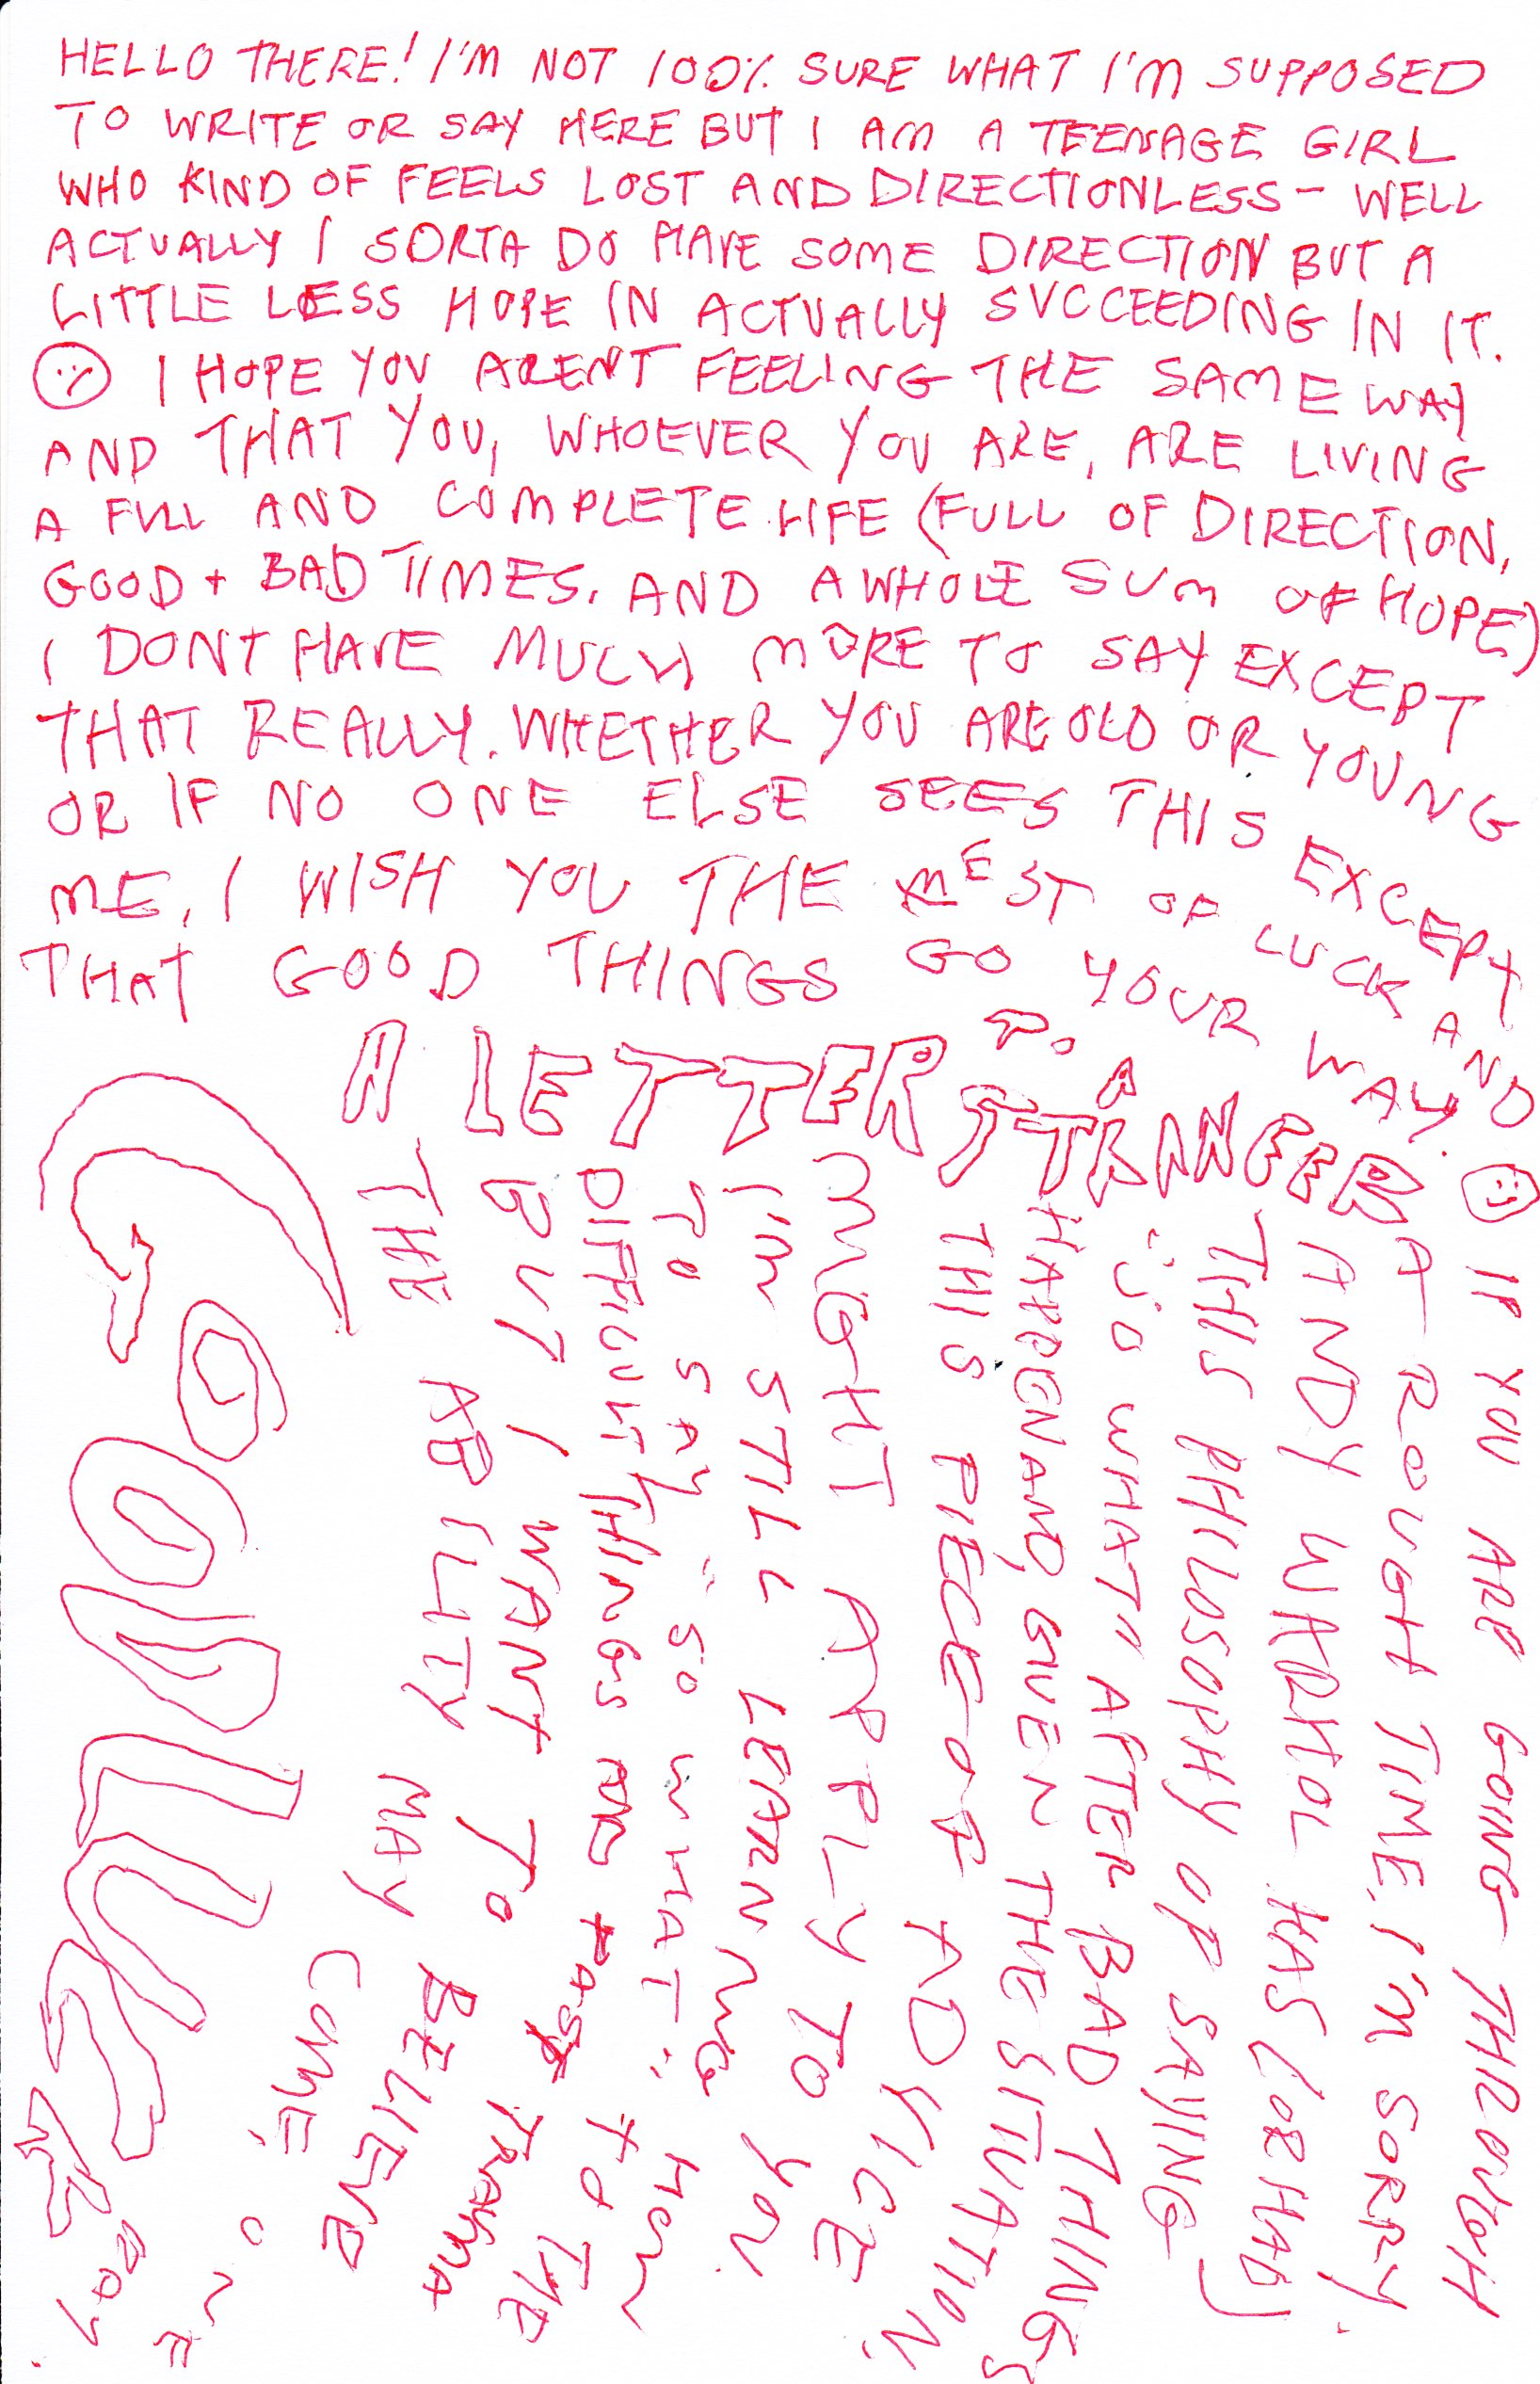 HELLO THERE! I'M NOT 100% SURE WHAT I'M SUPPOSED
TO WRITE OR SAY HERE BUT I AM A TEENAGE GIRL
WHO KIND OF FEELS LOST AND DIRECTIONLESS - WELL
ACTUALLY I SORTA DO HAVE SOME DIRECTION BUT A
LITTLE LESS HOPE IN ACTUALLY SUCCEEDING IN IT.
I HOPE YOU ARENT FEELING THE SAME WAY
AND THAT YOU, WHOEVER YOU ARE, ARE LIVING
A FULL AND COMPLETE LIFE (FULL OF DIRECTION,
GOOD + BAD TIMES, AND A WHOLE SUM OF HOPE)
I DONT HAVE MUCH MORE TO SAY EXCEPT
THAT REALLY. WHETHER YOU ARE OLD OR YOUNG
OR IF NO ONE ELSE SEES THIS EXCEPT
ME, I WISH YOU THE BEST OF LUCK AND
THAT GOOD THINGS GO YOUR WAY.
A LETTER TO A STRANGER
IF YOU ARE GOING THROUGH
A ROUGH TIME, I'M SORRY.
ANDY WARHOL HAS (OR HAD)
THIS PHILOSOPHY OF SAYING
"SO WHAT" AFTER BAD THINGS
HAPPEN AND, GIVEN THE SITUATION,
THIS PIECE OF ADVICE
MIGHT APPLY TO YOU.
I'M STILL LEARNING HOW
TO SAY "SO WHAT" TO THE
DIFFICULT THINGS AND PAST TRAUMA
BUT I WANT TO BELIEVE
THE ABILITY MAY COME.
ONE
DAY.